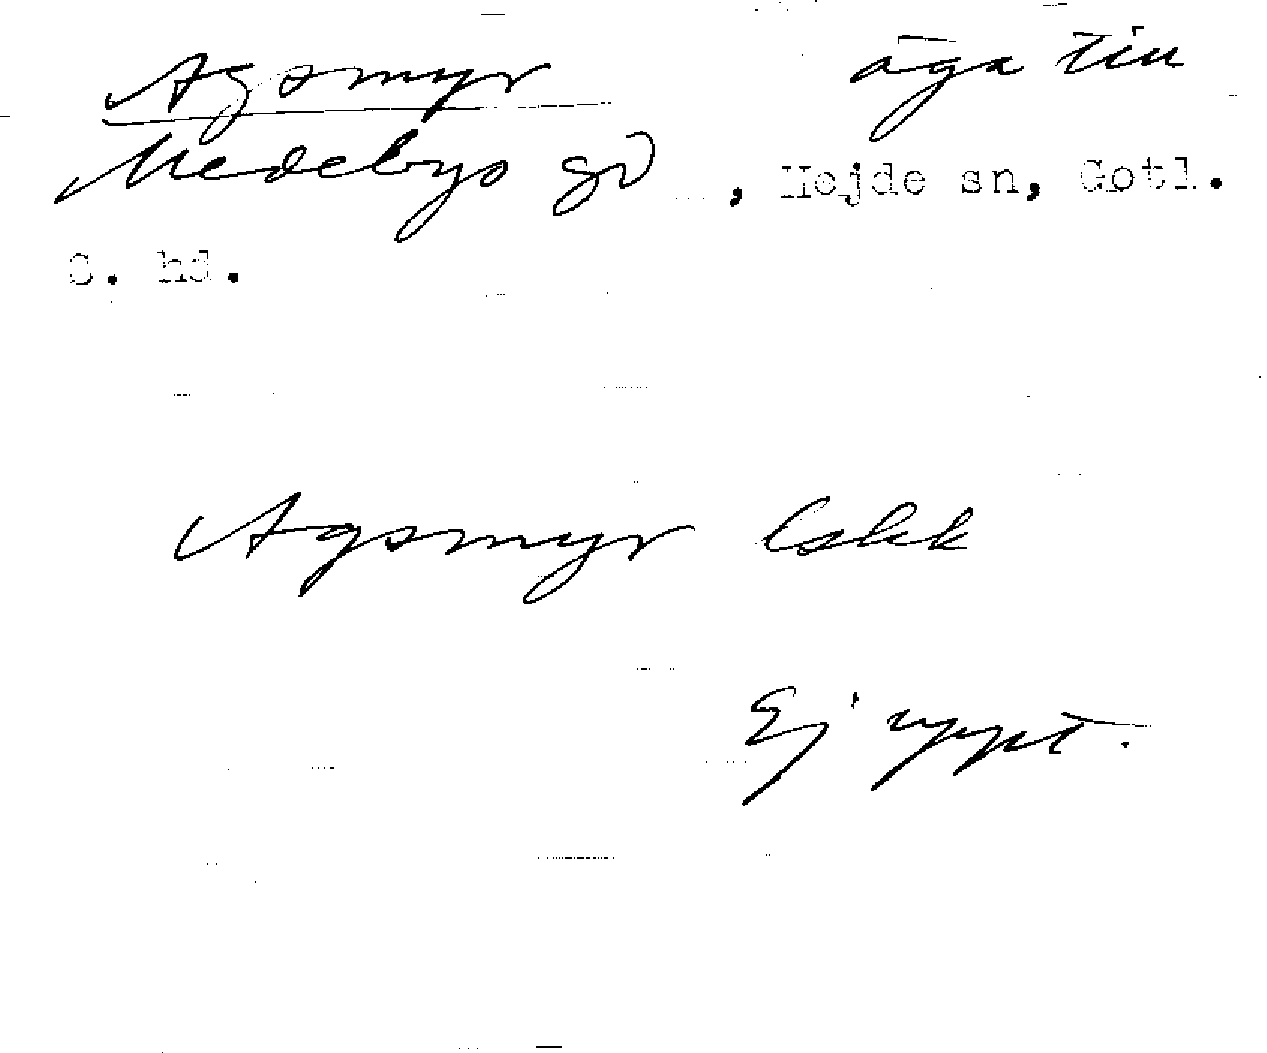 Agsmyr äga till
Medebys gd, Hejde sn, Gotl.
S. hd.
Agsmyr Lskk
Ej uppt.